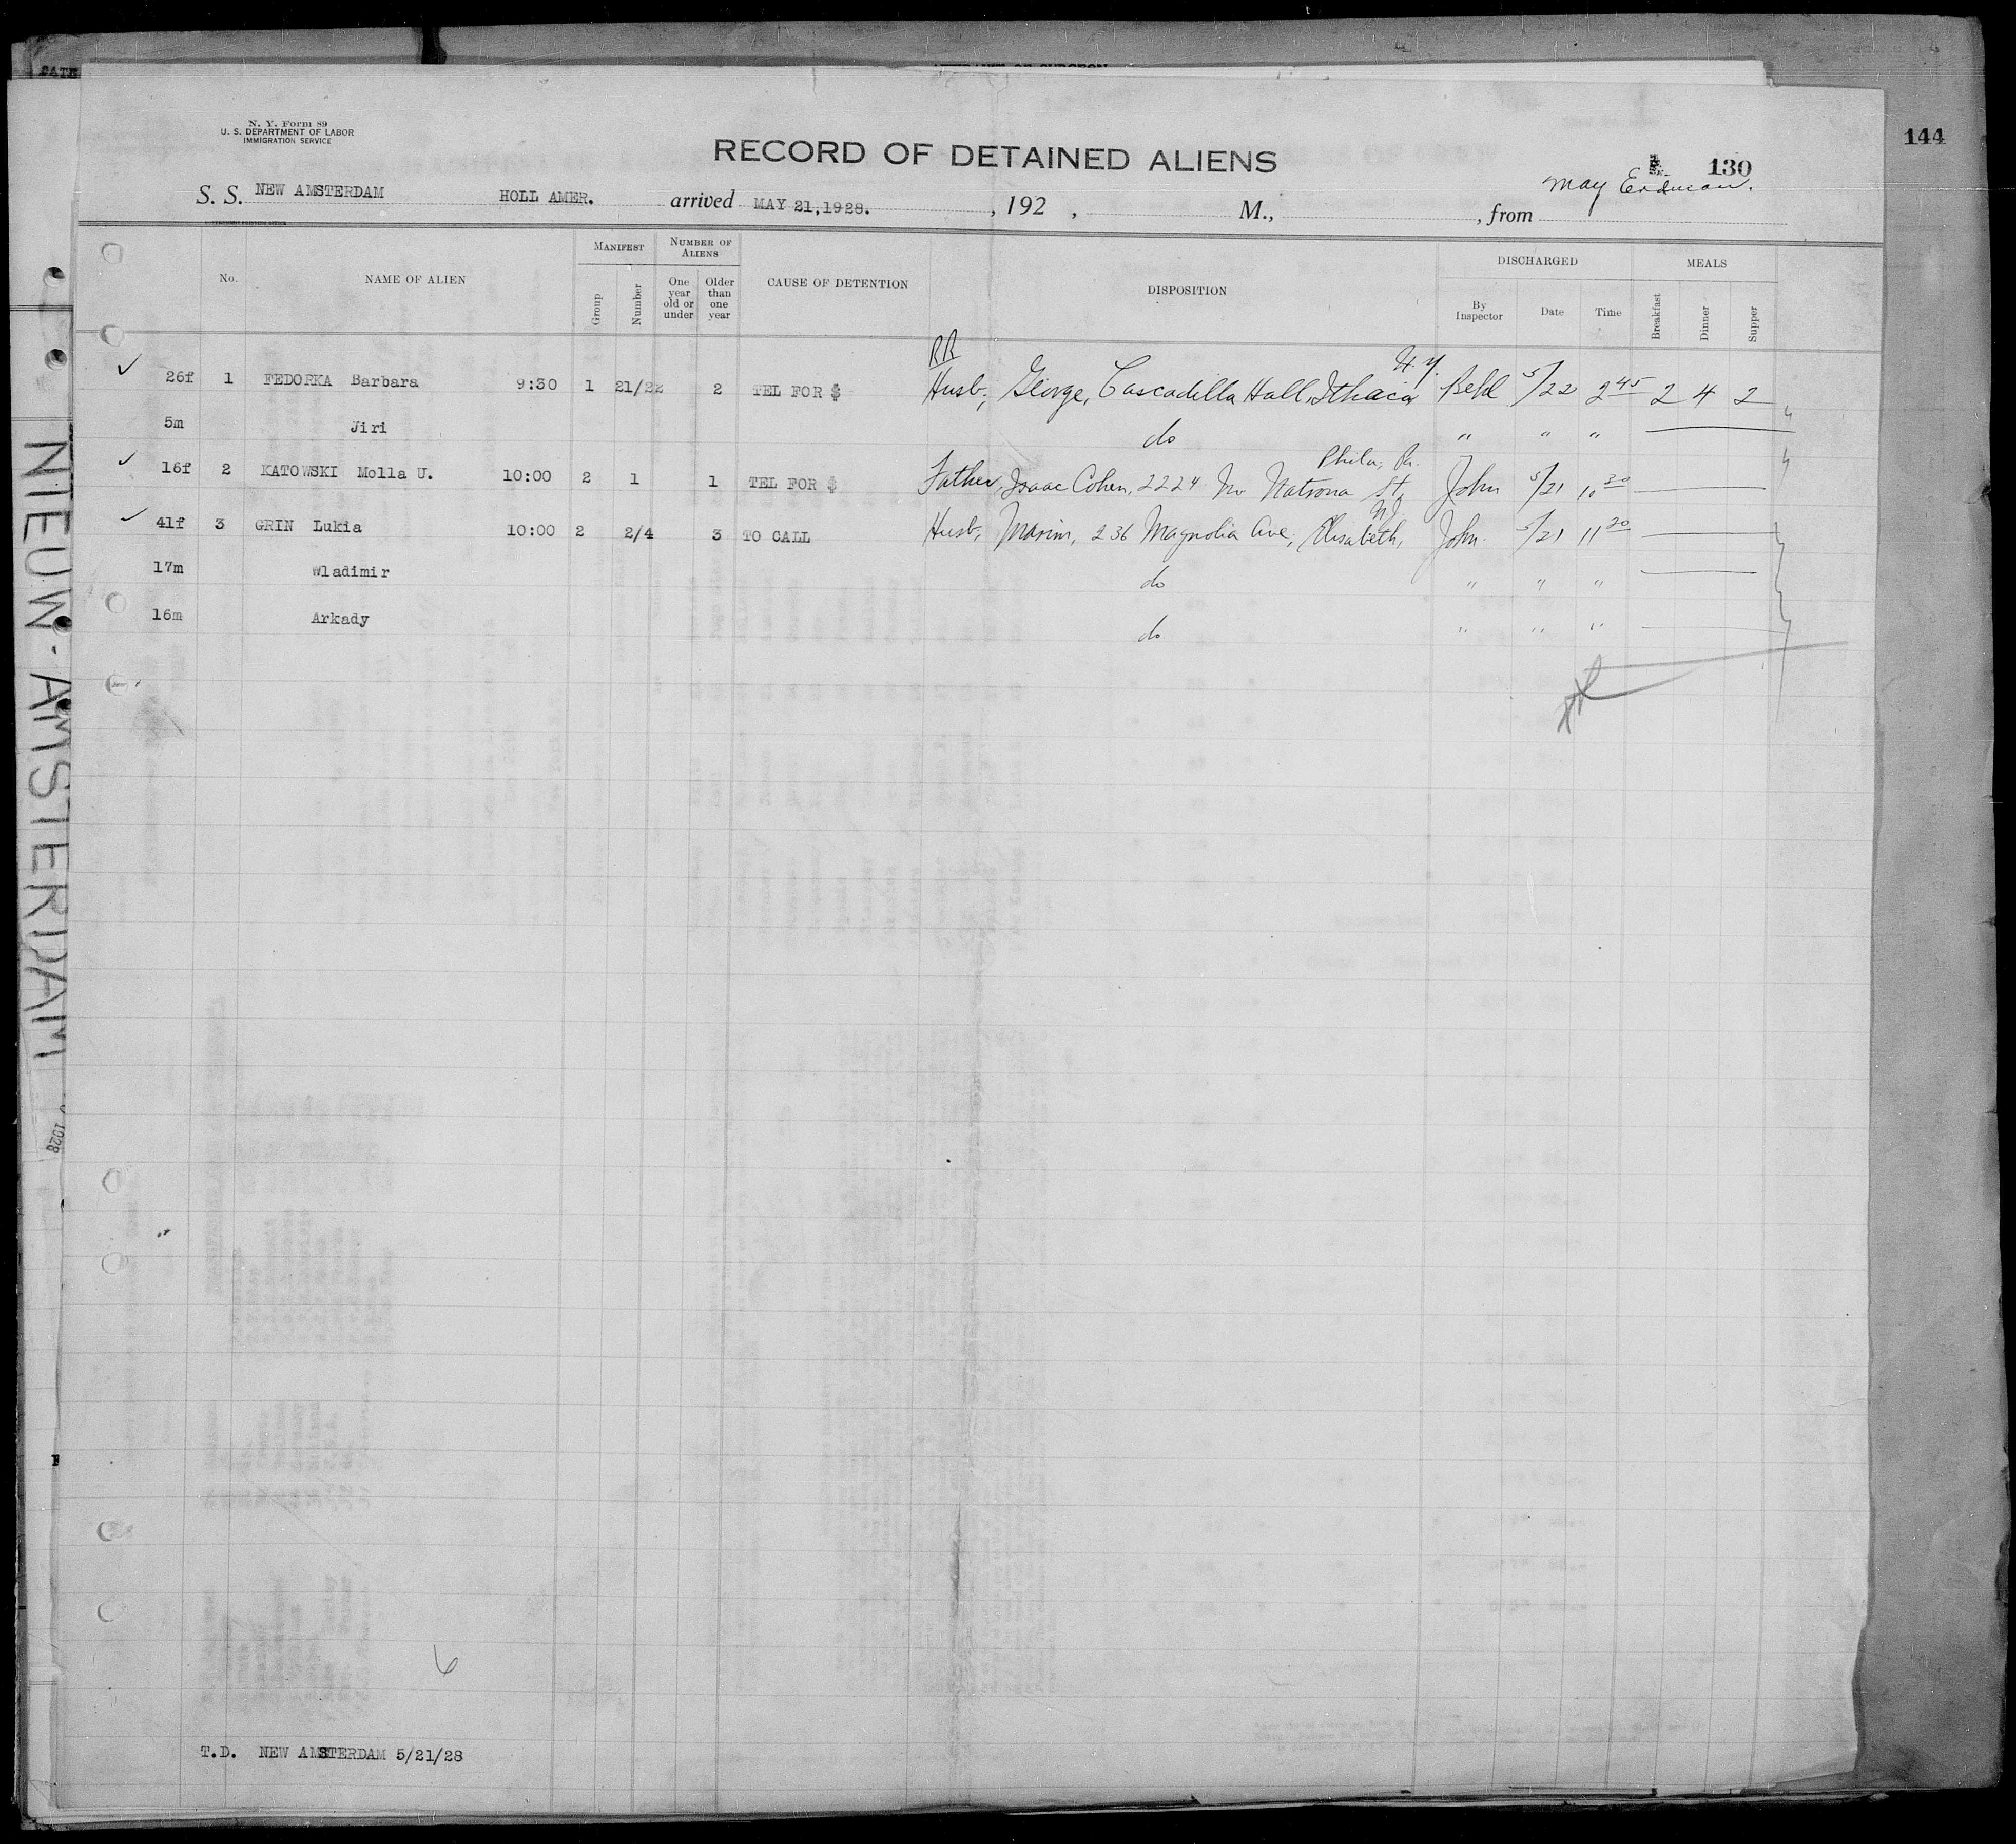 144
N. Y. Form 89
U. S. DEPARTMENT OF LABOR
IMMIGRATION SERVICE
RECORD OF DETAINED ALIENS
130
S. S. NEW AMSTERDAM HOLL AMER. arrived MAY 21,1928. , 192 , M., , from May Erdman.
No. NAME OF ALIEN MANIFEST Group Number NUMBER OF ALIENS One year old or under Older than one year CAUSE OF DETENTION DISPOSITION DISCHARGED By Inspector Date Time MEALS Breakfast Dinner Supper
RR
N.Y.
✓ 26f 1 FEDORKA Barbara 9:30 1 21/22 2 TEL FOR $ Husb, George, Cascadilla Hall, Ithaca 5/22 2 45 2 4 2
5m Jiri do " " "
Phila, Pa.
✓ 16f 2 KATOWSKI Molla U. 10:00 2 1 1 TEL FOR $ Father, Isaac Cohen, 2224 No Natrona St, John 5/21 10 30
N.J.
✓ 41f 3 GRIN Lukia 10:00 2 2/4 3 TO CALL Husb, Maxim, 236 Magnolia Ave, Elisabeth, John 5/21 11 20
17m Wladimir do " " "
16m Arkady do " " "
6
T.D. NEW AMSTERDAM 5/21/28
NIEUW-AMSTERDAM
1928